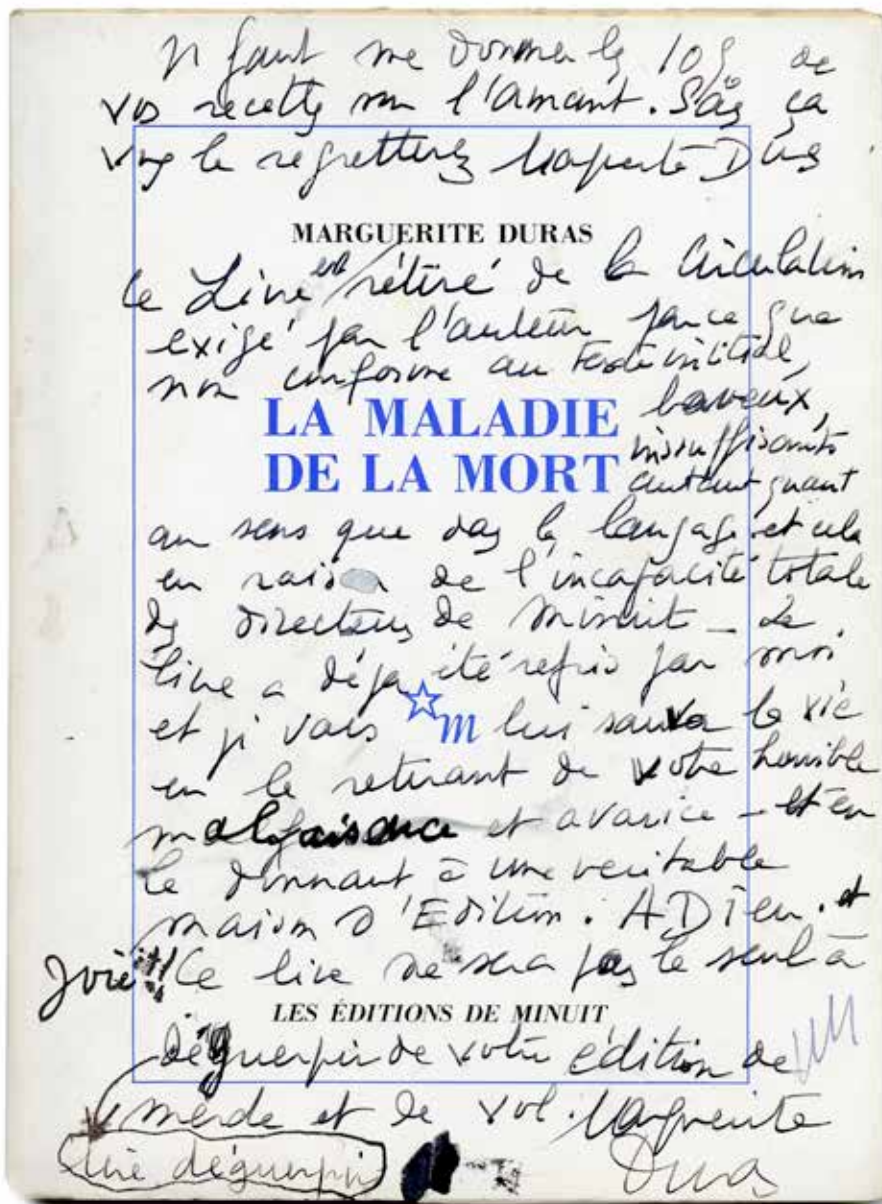 Il faut me donner les 10% de
vos recettes sur l'amant. Sans ça
vous le regretterez Marguerite Duras
MARGUERITE DURAS
Ce Livre est rétiré de la circulation
exigé par l'auteur parce que
non conforme au texte initial,
LA MALADIE
DE LA MORT
baveux,
insuffisants
autant quant
au sens que dans le langage et cela
en raison de l'incapacité totale
des directeurs de Minuit _ Le
livre a déja été repris par moi
et je vais lui sauver la vie
m
en le retirant de votre horrible
malfaisance et avarice _ et en
le donnant à une veritable
maison d'Edition. ADIeu. et
Joie!! Ce livre ne sera pas le seul à
LES ÉDITIONS DE MINUIT
déguerpir de votre édition de
merde et de vol. Marguerite
Duras
lire déguerpir